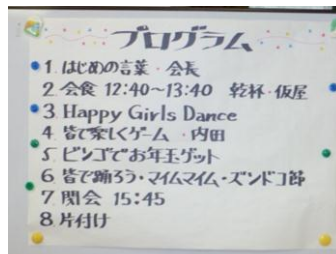 プログラム
1. はじめの言葉・会長
2 会食 12:40〜13:40 乾杯・仮屋
3. Happy Girls Dance
4 皆で楽しくゲーム・内田
5. ビンゴでお年玉ゲット
6 皆で踊ろう・マイムマイム・ズンドコ節
7 閉会 15:45
8. 片付け